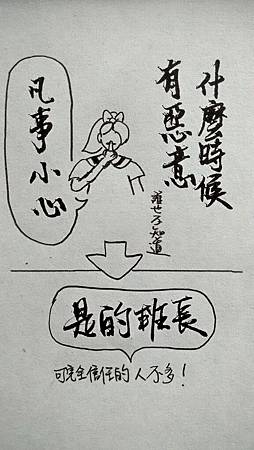 什麼時候
有惡意
誰也不知道
凡事小心
是的班長
可完全信任的人不多!